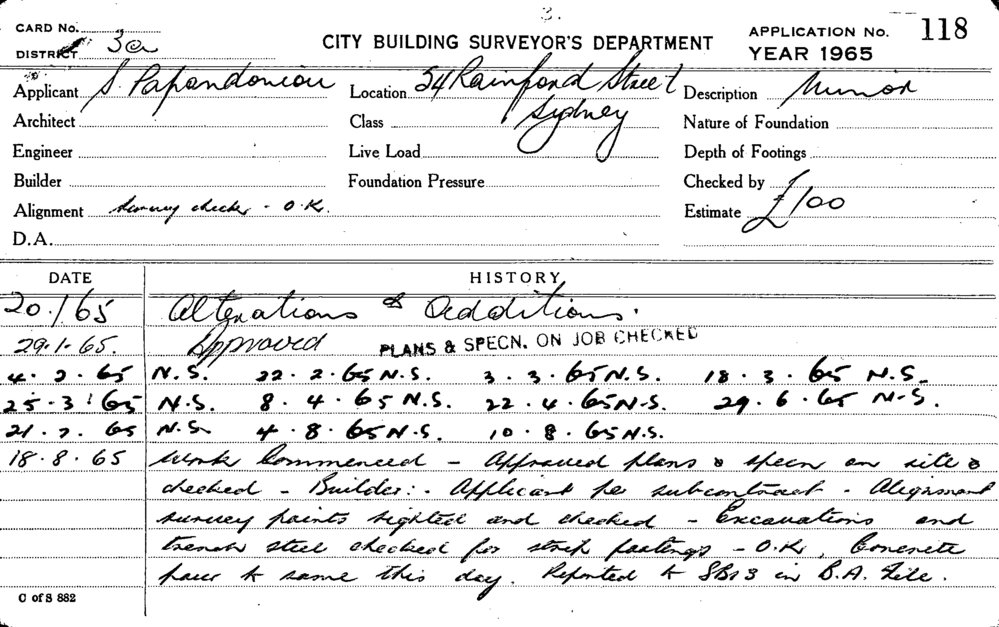 3.
CARD No.
DISTRICT 3a
CITY BUILDING SURVEYOR'S DEPARTMENT
APPLICATION No. 118
YEAR 1965
Applicant S. Papandoniou Location 54 Rainford Street Sydney Description Minor
Architect Class Nature of Foundation
Engineer Live Load Depth of Footings
Builder Foundation Pressure Checked by
Alignment Survey check - O.K. Estimate £100
D.A.
DATE HISTORY
20.1.65 Alterations & Additions.
29.1.65. Approved PLANS & SPECN. ON JOB CHECKED
4.2.65 N.S. 22.2.65 N.S. 3.3.65 N.S. 18.3.65 N.S.
25.3.65 N.S. 8.4.65 N.S. 22.4.65 N.S. 29.6.65 N.S.
21.7.65 N.S. 4.8.65 N.S. 10.8.65 N.S.
18.8.65 Work Commenced - Approved plans & specn on site &
checked - Builder:- Applicant per subcontract - Alignment
survey points sighted and checked - Excavations and
trench steel checked for strip footings - O.K. Concrete
pour to same this day. Reported to SB13 in B.A. File.
C of S 882